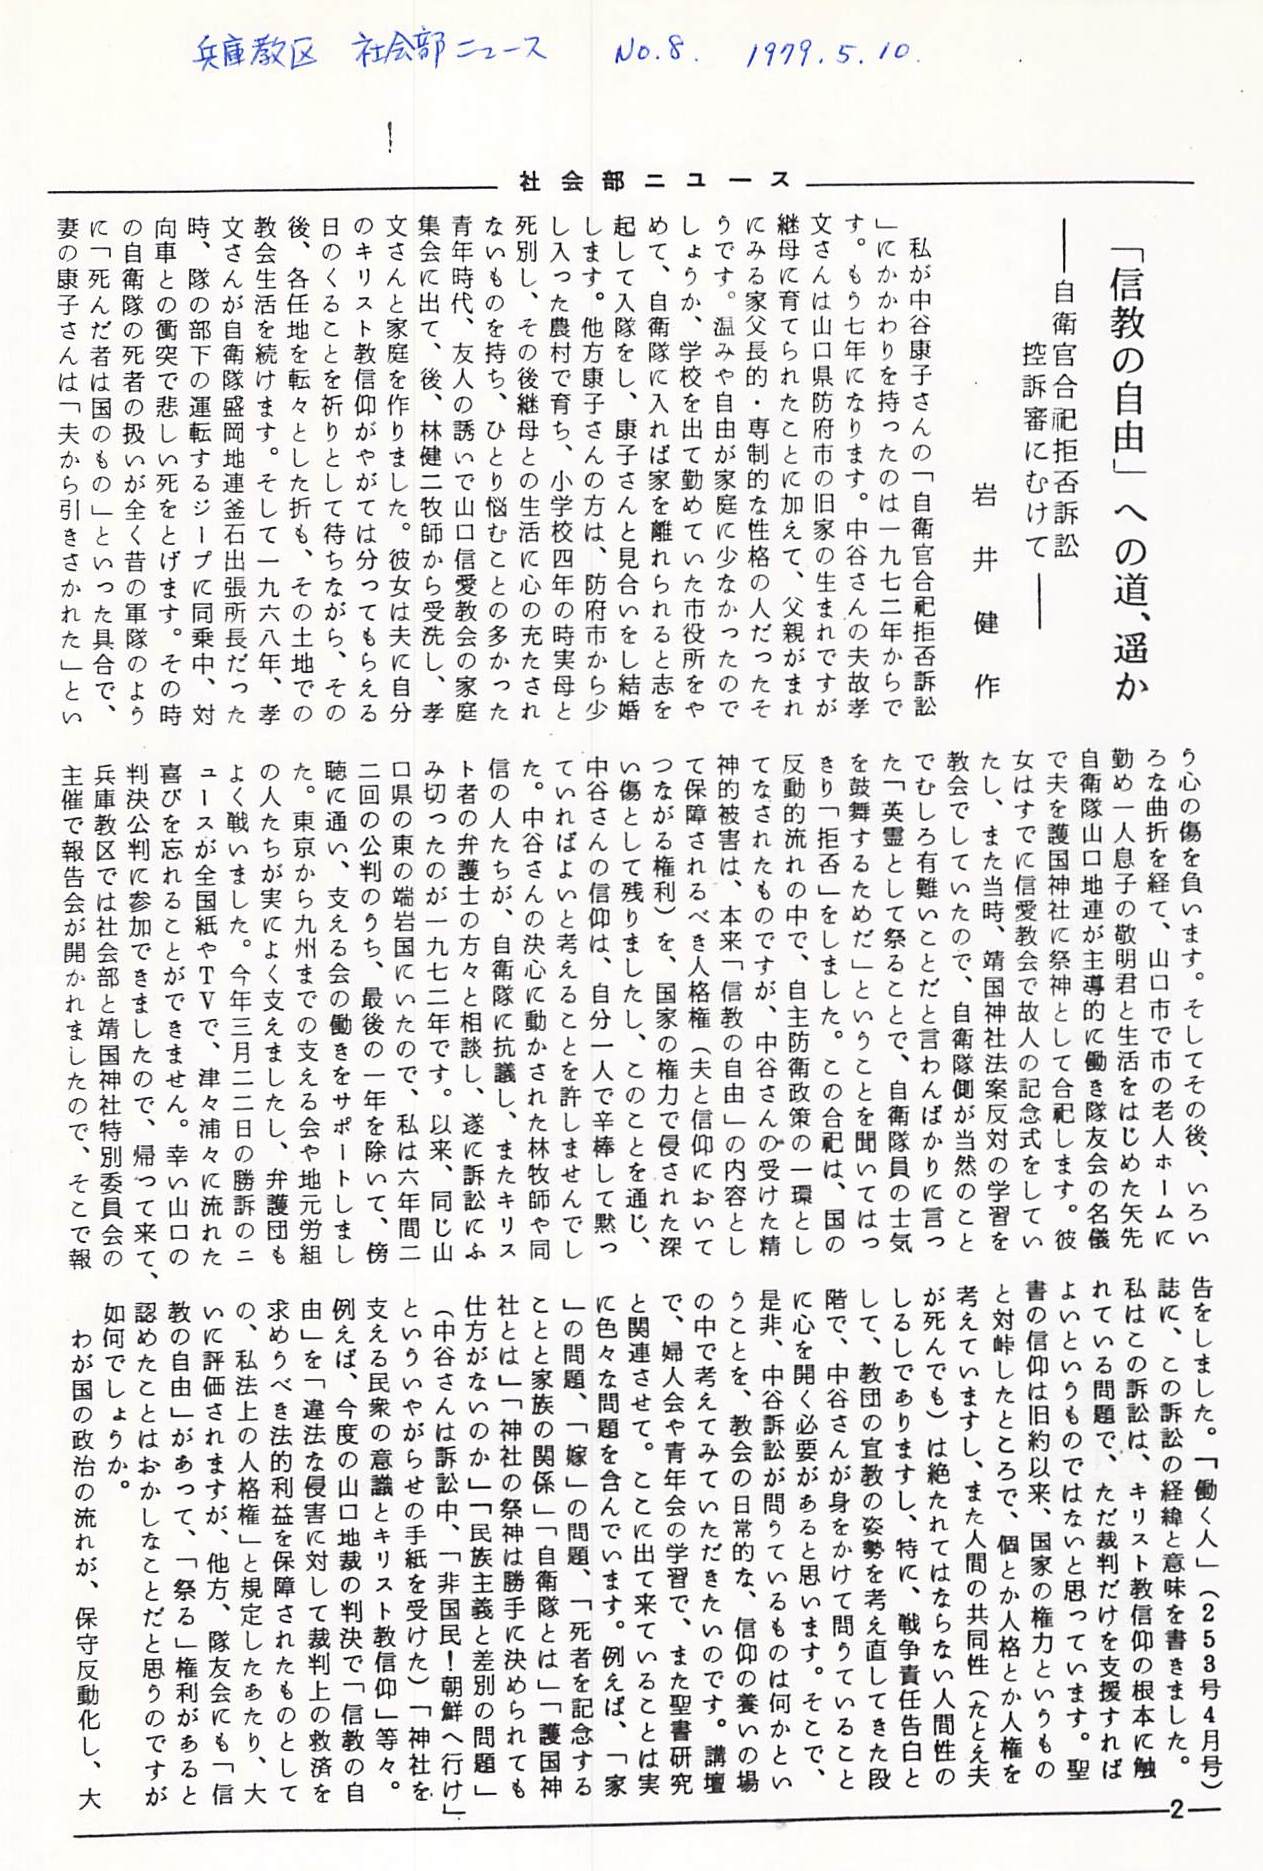 兵庫教区 社会部ニュース No.8. 1979.5.10.
社会部ニュース
「信教の自由」への道、遥か
――自衛官合祀拒否訴訟
控訴審にむけて――
岩井健作
私が中谷康子さんの「自衛官合祀拒否訴訟
」にかかわりを持ったのは一九七二年からで
す。もう七年になります。中谷さんの夫故孝
文さんは山口県防府市の旧家の生まれですが
継母に育てられたことに加えて、父親がまれ
にみる家父長的・専制的な性格の人だったそ
うです。温みや自由が家庭に少なかったので
しょうか、学校を出て勤めていた市役所をや
めて、自衛隊に入れば家を離れられると志を
起して入隊をし、康子さんと見合いをし結婚
します。他方康子さんの方は、防府市から少
し入った農村で育ち、小学校四年の時実母と
死別し、その後継母との生活に心の充たされ
ないものを持ち、ひとり悩むことの多かった
青年時代、友人の誘いで山口信愛教会の家庭
集会に出て、後、林健二牧師から受洗し、孝
文さんと家庭を作りました。彼女は夫に自分
のキリスト教信仰がやがては分ってもらえる
日のくることを祈りとして待ちながら、その
後、各任地を転々とした折も、その土地での
教会生活を続けます。そして一九六八年、孝
文さんが自衛隊盛岡地連釜石出張所長だった
時、隊の部下の運転するジープに同乗中、対
向車との衝突で悲しい死をとげます。その時
の自衛隊の死者の扱いが全く昔の軍隊のよう
に「死んだ者は国のもの」といった具合で、
妻の康子さんは「夫から引きさかれた」とい
う心の傷を負います。そしてその後、いろい
ろな曲折を経て、山口市で市の老人ホームに
勤め一人息子の敬明君と生活をはじめた矢先
自衛隊山口地連が主導的に働き隊友会の名儀
で夫を護国神社に祭神として合祀します。彼
女はすでに信愛教会で故人の記念式をしてい
たし、また当時、靖国神社法案反対の学習を
教会でしていたので、自衛隊側が当然のこと
でむしろ有難いことだと言わんばかりに言っ
た「英霊として祭ることで、自衛隊員の士気
を鼓舞するためだ」ということを聞いてはっ
きり「拒否」をしました。この合祀は、国の
反動的流れの中で、自主防衛政策の一環とし
てなされたものですが、中谷さんの受けた精
神的被害は、本来「信教の自由」の内容とし
て保障されるべき人格権（夫と信仰において
つながる権利）を、国家の権力で侵された深
い傷として残りましたし、このことを通じ、
中谷さんの信仰は、自分一人で辛棒して黙っ
ていればよいと考えることを許しませんでし
た。中谷さんの決心に動かされた林牧師や同
信の人たちが、自衛隊に抗議し、またキリス
ト者の弁護士の方々と相談し、遂に訴訟にふ
み切ったのが一九七二年です。以来、同じ山
口県の東の端岩国にいたので、私は六年間二
二回の公判のうち、最後の一年を除いて、傍
聴に通い、支える会の働きをサポートしまし
た。東京から九州までの支える会や地元労組
の人たちが実によく支えましたし、弁護団も
よく戦いました。今年三月二二日の勝訴のニ
ュースが全国紙やTVで、津々浦々に流れた
喜びを忘れることができません。幸い山口の
判決公判に参加できましたので、帰って来て、
兵庫教区では社会部と靖国神社特別委員会の
主催で報告会が開かれましたので、そこで報
告をしました。「働く人」（253号4月号）
誌に、この訴訟の経緯と意味を書きました。
私はこの訴訟は、キリスト教信仰の根本に触
れている問題で、ただ裁判だけを支援すれば
よいというものではないと思っています。聖
書の信仰は旧約以来、国家の権力というもの
と対峠したところで、個とか人格とか人権を
考えていますし、また人間の共同性（たとえ夫
が死んでも）は絶たれてはならない人間性の
しるしでありますし、特に、戦争責任告白と
して、教団の宣教の姿勢を考え直してきた段
階で、中谷さんが身をかけて問うていること
に心を開く必要があると思います。そこで、
是非、中谷訴訟が問うているものは何かとい
うことを、教会の日常的な、信仰の養いの場
の中で考えてみていただきたいのです。講壇
で、婦人会や青年会の学習で、また聖書研究
と関連させて。ここに出て来ていることは実
に色々な問題を含んでいます。例えば、「家
」の問題、「嫁」の問題、「死者を記念する
ことと家族の関係」「自衛隊とは」「護国神
社とは」「神社の祭神は勝手に決められても
仕方がないのか」「民族主義と差別の問題」
（中谷さんは訴訟中、「非国民！朝鮮へ行け」
といういやがらせの手紙を受けた）「神社を
支える民衆の意識とキリスト教信仰」等々。
例えば、今度の山口地裁の判決で「信教の自
由」を「違法な侵害に対して裁判上の救済を
求めうべき法的利益を保障されたものとして
の、私法上の人格権」と規定したあたり、大
いに評価されますが、他方、隊友会にも「信
教の自由」があって、「祭る」権利があると
認めたことはおかしなことだと思うのですが
如何でしょうか。
わが国の政治の流れが、保守反動化し、大
2